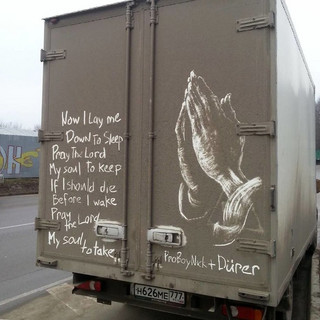 Now I lay me
Down To Sleep
Pray The Lord
My soul to keep
If I should die
Before I wake
Pray
the Lord
My soul
to take...
ProBoyNick + Dürer
H626ME 777